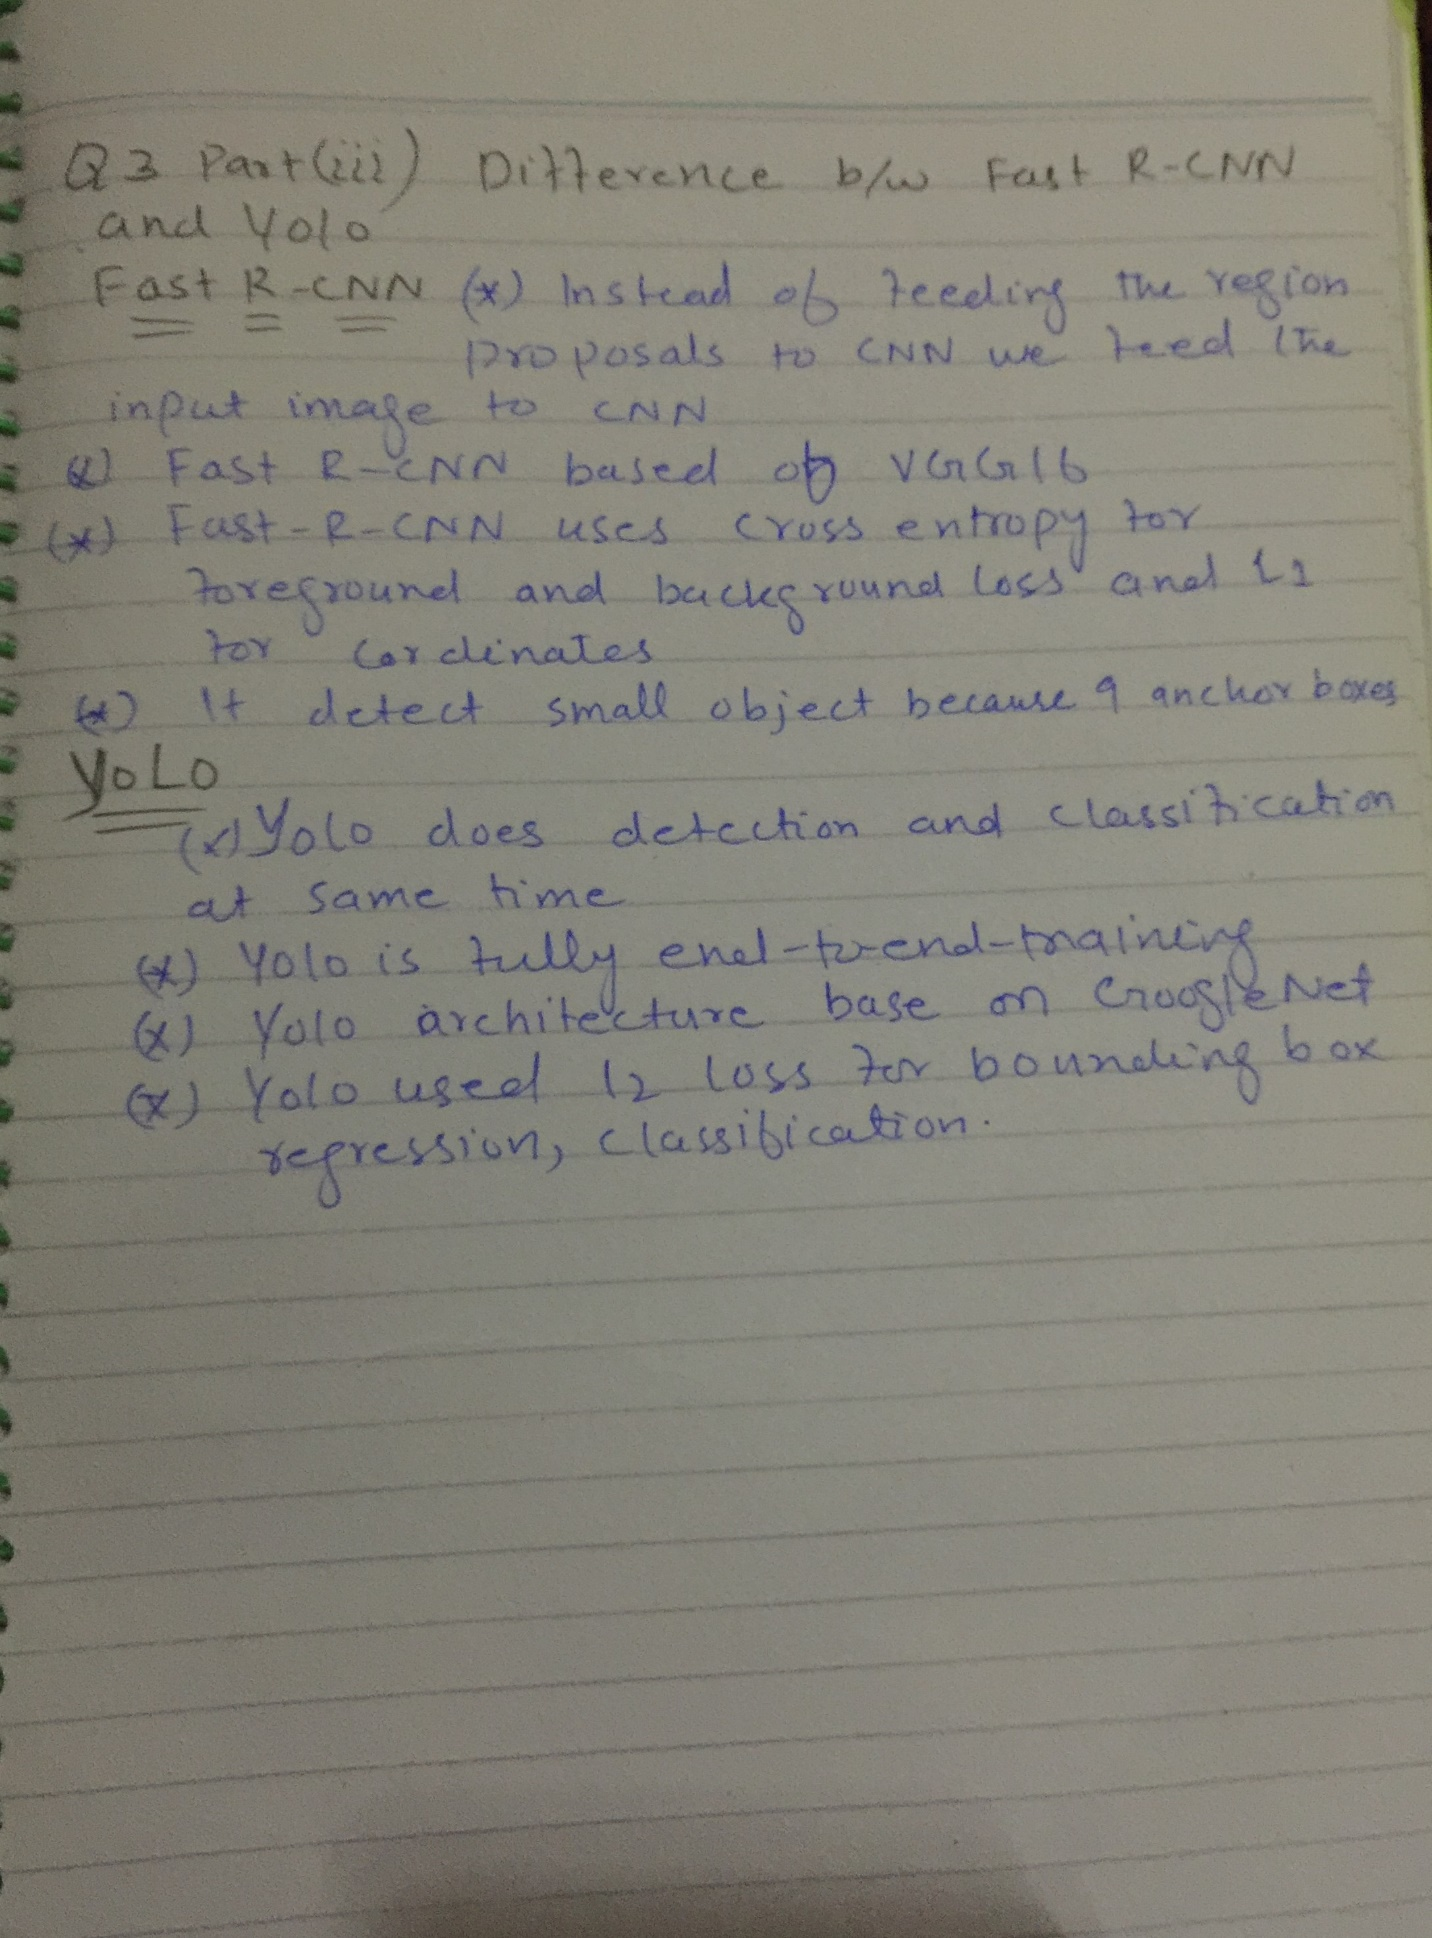 Q3 Part(iii) Difference b/w Fast R-CNN
and Yolo
Fast R-CNN (*) Instead of feeding the region
proposals to CNN we feed the
input image to CNN
(*) Fast R-CNN based on VGG16
(*) Fast-R-CNN uses cross entropy for
foreground and background loss and L1
for cordinates
(*) It detect small object because 9 anchor boxes
YOLO
(*) Yolo does detection and classification
at same time
(*) Yolo is fully end-to-end-training
(*) Yolo architecture base on GoogleNet
(*) Yolo used l2 loss for bounding box
regression, classification.